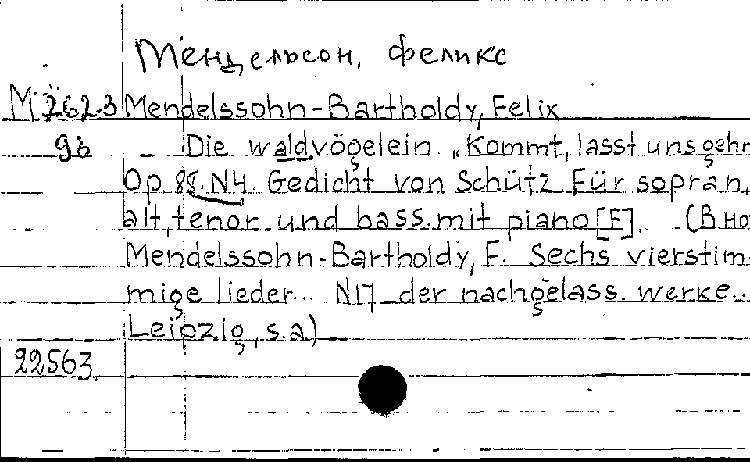 Мендельсон, Феликс
М 262.3 Mendelssohn-Bartholdy, Felix
9b Die waldvögelein. „Kommt, lasst uns gehn
Op. 88. N4. Gedicht von Schütz Für sopran,
alt, tenor und bass mit piano [F]. (В но
Mendelssohn-Bartholdy, F. Sechs vierstim-
mige lieder. N17 der nachgelass. werke.
Leipzig, s.a)
22563.